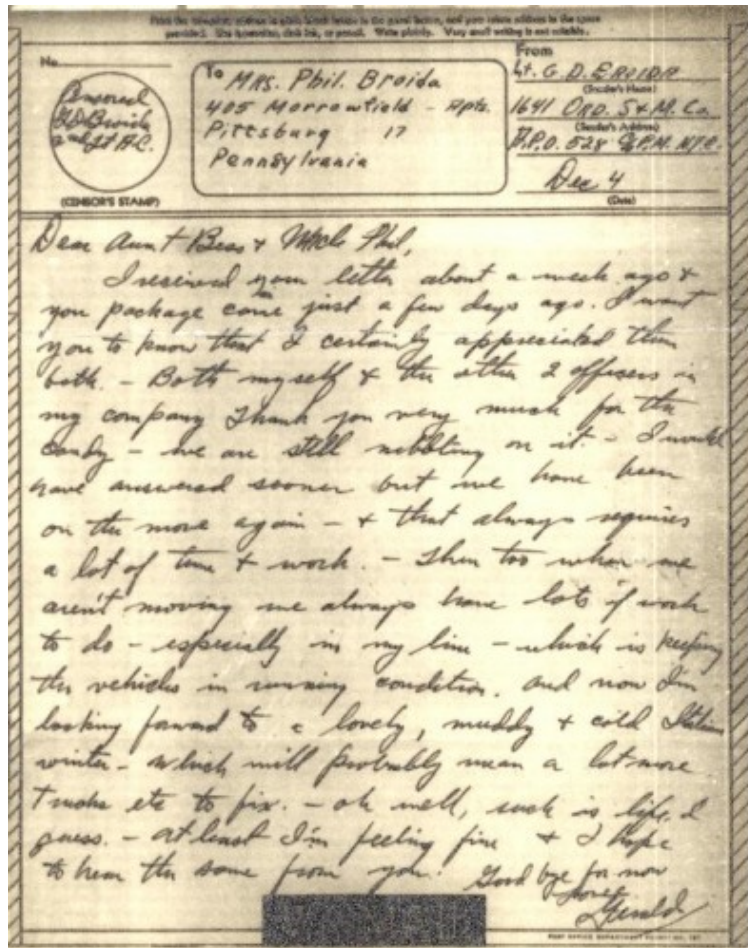 Print the complete address in plain block letters in the panel below, and your return address in the space
provided. Use typewriter, dark ink, or pencil. Write plainly. Very small writing is not suitable.
No.
Censored
G D Broida
2nd Lt
(CENSOR'S STAMP)
To Mrs. Phil. Broida
405 Morrowfield - Apts.
Pittsburg 17
Pennsylvania
From
Lt. G. D. BROIDA
(Sender's Name)
1641 ORD. S & M. Co
(Sender's Address)
A.P.O. 528 P.M. N.Y.C.
Dec 4
(Date)
Dear Aunt Bess & Uncle Phil,
I received your letter about a week ago &
you package came just a few days ago. I want
you to know that I certainly appreciated them
both. - Both myself & the other 2 officers in
my company thank you very much for the
candy - we are still nibbling on it. - I would
have answered sooner but we have been
on the move again - & that always requires
a lot of time & work. - Then too when we
aren't moving we always have lots of work
to do - especially in my line - which is keeping
the vehicles in running condition. And now I'm
looking forward to a lovely, muddy & cold Italian
winter - which will probably mean a lot more
trucks etc to fix. - oh well, such is life, I
guess. - at least I'm feeling fine & I hope
to hear the same from you. Good bye for now
Love
Gerald
POST OFFICE DEPARTMENT